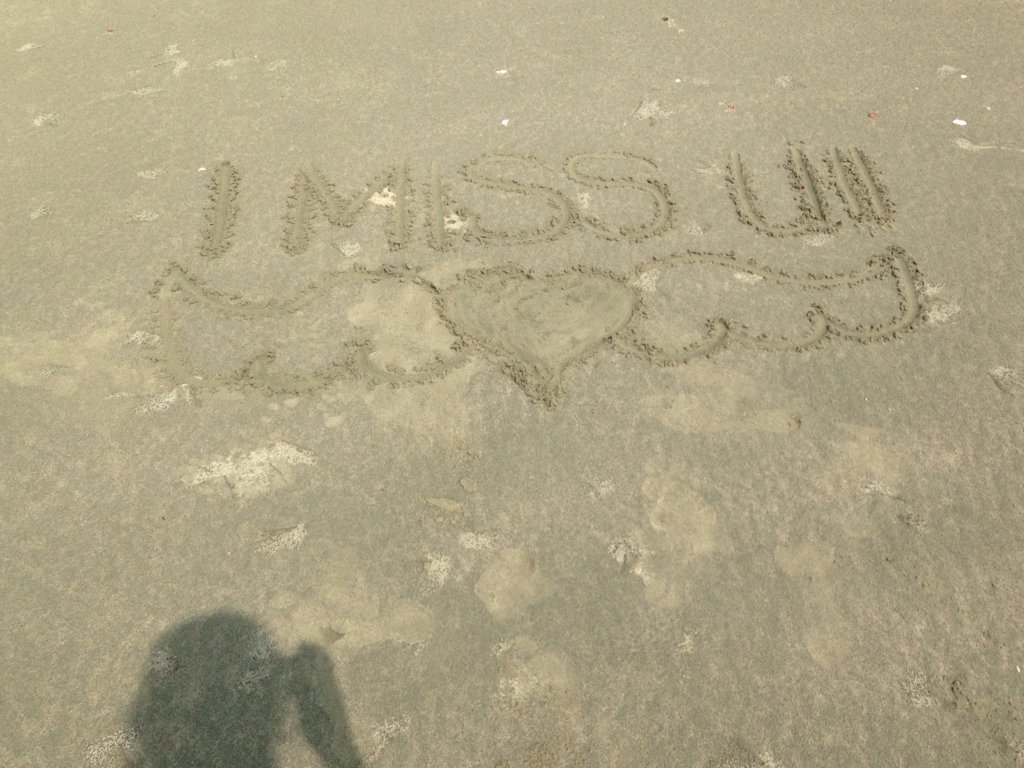 I MISS U!!